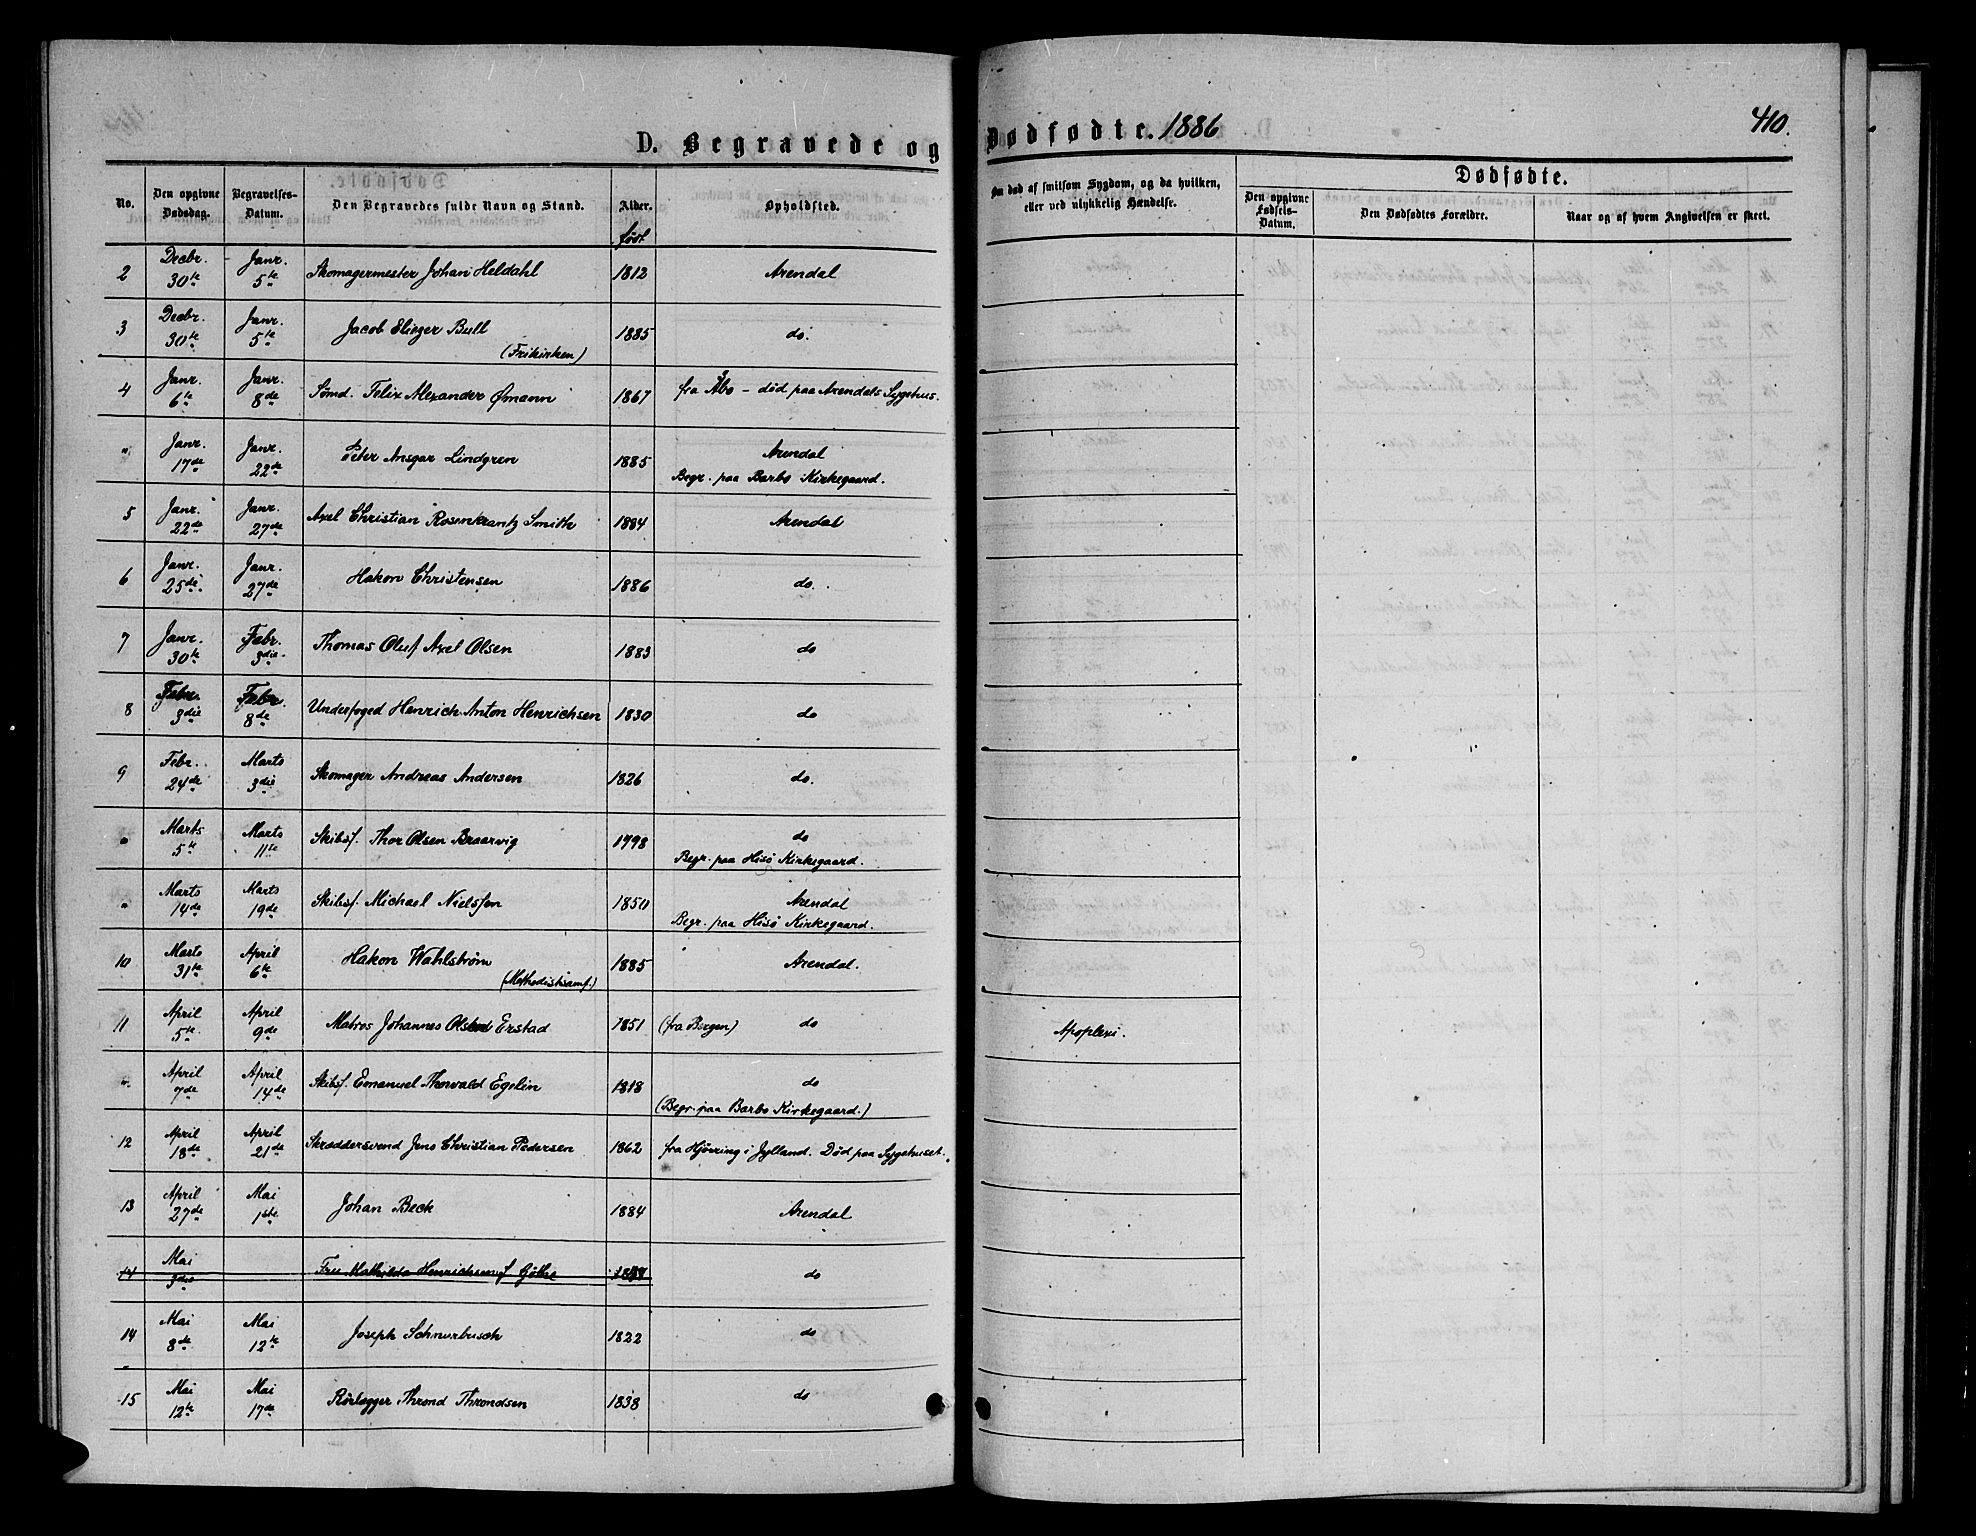 D. Begravede og Dødfødte. 1886 410.
No. Den opgivne Dødsdag. Begravelses-Datum. Den Begravedes fulde Navn og Stand. Alder. født Opholdsted. Om død af smitsom Sygdom, og da hvilken, eller ved ulykkelig Hændelse. Dødfødte. Den opgivne Fødsels-Datum. Den Dødfødtes Forældre. Naar og af hvem Angivelsen er skeet.
2 Decbr. 30te Janr. 5te Skomagermester Johan Heldahl 1812 Arendal
3 Decbr. 30te Janr. 5te Jacob Elieger Bull (Frikirken) 1885 do.
4 Janr. 6te Janr. 8de Sømd. Felix Alexander Ømann 1867 fra Åbo - død paa Arendals Sygehus.
" Janr. 17de Janr. 22de Peter Ansgar Lindgren 1885 Arendal
Begr. paa Barbo Kirkegaard.
5 Janr. 22de Janr. 27de Axel Christian Rosenkrantz Smith 1884 Arendal
6 Janr. 25de Janr. 27de Hakon Christensen 1886 do.
7 Janr. 30te Febr. 3die Thomas Oluf Axel Olsen 1883 do
8 Febr. 3die Febr. 8de Underfoged Henrich Anton Henrichsen 1830 do
9 Febr. 24de Marts 3die Skomager Andreas Andersen 1826 do.
" Marts 5te Marts 11te Skibsf. Thor Olsen Braarvig 1798 do
Begr. paa Hisø Kirkegaard.
" Marts 14de Marts 19de Skibsf. Michael Nielsen 1850 Arendal
Begr. paa Hisø Kirkegaard.
10 Marts 31te April 6te Hakon Wahlstrøm (Methodistsamf.) 1885 Arendal.
11 April 5te April 9de Matros Johannes Olsen Erstad 1851 (fra Bergen) do Apoplexi.
" April 7de April 14de Skibsf. Emanuel Thorvald Egelin 1818 do
(Begr. paa Barbo Kirkegaard.)
12 April 18de April 21de Skræddersvend Jens Christian Pedersen 1862 fra Hjørring i Jylland. Død paa Sygehuset.
13 April 27de Mai 1ste Johan Beck 1884 Arendal
14 Mai 3die Fru Mathilda Henrichsen f. do
14 Mai 8de Mai 12te Joseph Schnurbusch 1822 do
15 Mai 12te Mai 17de Rørlægger Thrond Throndsen 1838 do